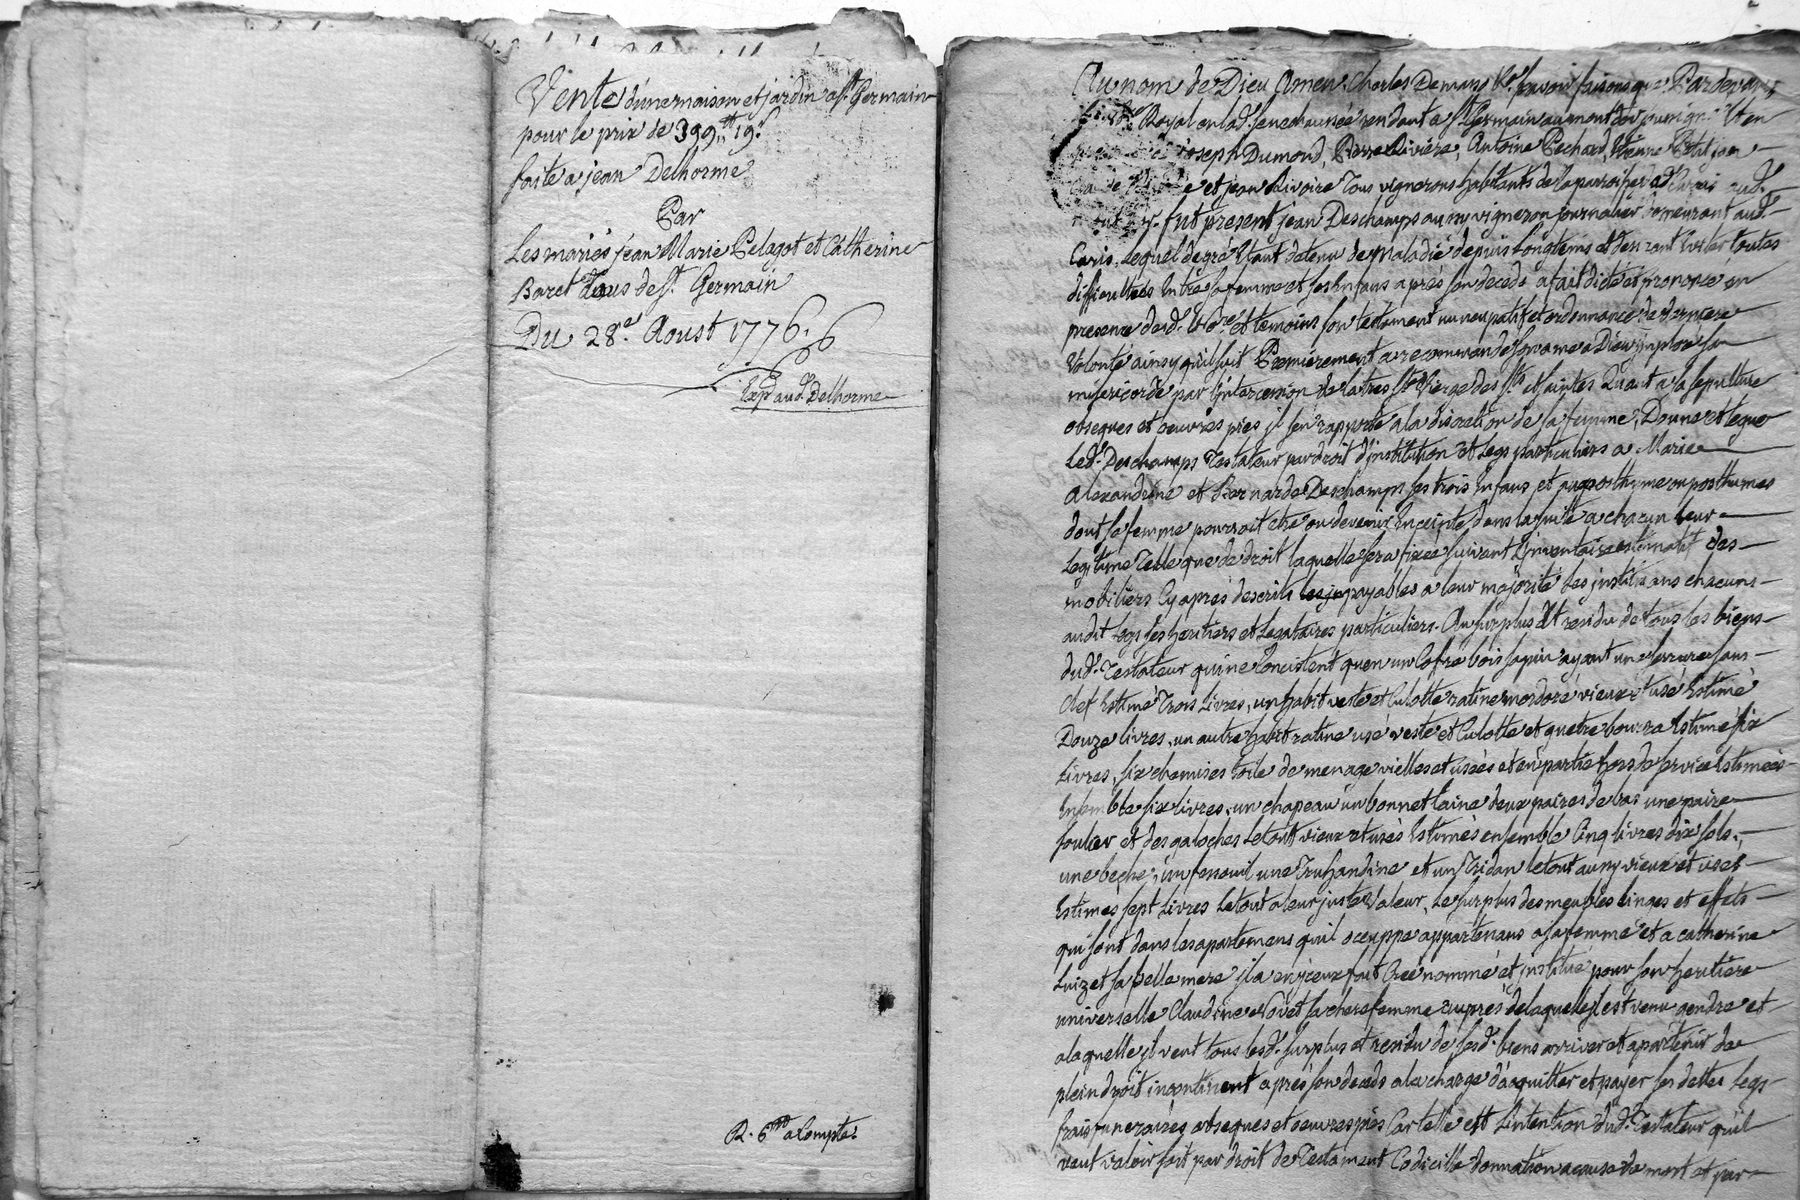 Vente d'une maison et jardin a St. Germain
pour le prix de 399 ₶ 19 s
faite a jean Delhorme
Par
Les mariés jean Marie Pelagot et Catherine
Baret tous de St. Germain
Du 28e. Aoust 1776.
Exp. aud. Delhorme
R. 6 ₶ a Compte.
Au nom de Dieu Amen Charles Demars Nre. savoir faisons que Pardevant
Royal en lad. senechaussée rendant a St Germain au mont d'or soussigné Et en
joseph Dumond, Pierre Riviere, Antoine Pechard, Etienne
et jean Rivoire Tous vignerons habitants de la paroisse
fut present jean Deschamps aussy vigneron journalier demeurant aud.
Curis, Lequel degré Etant detenu de maladie depuis Longtems et desirant Eviter toutes
difficultées Entre sa femme et ses Enfans aprés son decedz a fait dicté et prononcé en
presence dud. Nore. et temoins son testament nuncupatif et ordonnance de derniere
Volonté ainsy qu'il suit Premierement a recommandé son ame a Dieu imploré sa
misericorde par L'intercession de la tres Ste Vierge des Sts et saintes Quant a la sepulture
obseques et oeuvres pies il s'en rapporte a la discretion de sa femme, Donne et legue
Led. Deschamps Testateur par droit d'institution et Legs particuliers a Marie
Alexandrine et Bernarde Deschamps ses trois Enfans et au posthume ou posthumes
dont sa femme pourroit etre ou devenir Enceinte dans la suite a chacun leur
Legitime Telle que de droit laquelle sera fixée suivant L'inventaire estimatif des
mobiliers Cy aprés descrits payables a leur majorité Les instituans chacuns
audit Legs ses heritiers et Legataires particuliers. Au surplus Et residu de tous les biens
dud. Testateur qui ne Concistent qu'en un Cofre bois sapin ayant une serrure sans
Clef Estimé Trois Livres, un habit veste et Culotte ratine mordoré vieux et usé Estimé
Douze livres, un autre habit ratine usé veste et Culotte et guetre bourra Estimé six
Livres, six chemises toile de menage vielles et usées et en partie hors de service Estimées
Ensemble six livres, un chapeau un bonnet laine deux paires de bas une paire
soulier et des galoches Le tout vieux et usés Estimés ensemble Cinq livres dix sols,
une beche, un fessouil une Truhandine et un Tridan le tout aussy vieux et uses
Estimés sept Livres Le tout a leur juste Valeur, Le surplus des meubles linges et effets
qui sont dans les apartemens qu'il occuppe appartenans a sa femme et a Catherine
Luizet sa belle mere il a en iceux fait Créé nommé et institué pour son heritiere
universelle Claudine Novet sa chere femme auprés de laquelle il est venu gendre et
a laquelle il veut tous lesd. surplus et residu de sesd. biens arriver et apartenir de
plein droit incontinent aprés son decedz a la charge d'acquitter et payer ses dettes Legs
frais funeraires obseques et oeuvres pies Car telle est L'intention dud. Testateur qu'il
veut valoir soit par droit de Testament Codicille donnation a cause de mort et par